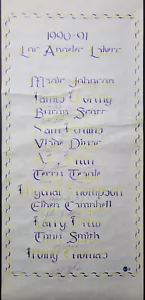 1990-91
Los Angeles Lakers
Magic Johnson
James Worthy
Byron Scott
Sam Perkins
Vlade Divac
A.C. Green
Terry Teagle
Mychal Thompson
Elden Campbell
Larry Drew
Tony Smith
Irving Thomas